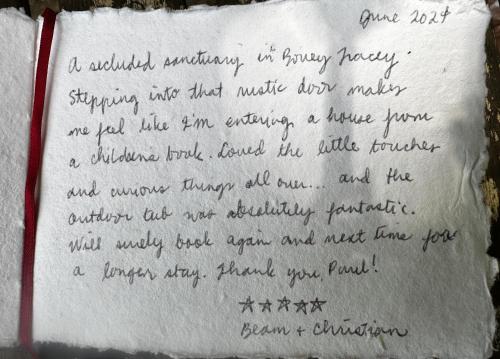 June 2024
A secluded sanctuary in Bovey Tracey.
Stepping into that rustic door makes
me feel like I'm entering a house from
a childrens book. Loved the little touches
and curious things all over... and the
outdoor tub was absolutely fantastic.
Will surely book again and next time for
a longer stay. Thank you, Paul!
☆☆☆☆☆
Beam + Christian